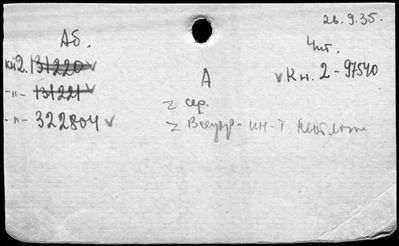 26.9.35.
Аб. Чит.
кн2. 131220 v
А v Кн. 2-97540
-"- 131221 v
z сер.
-"- 322804 v
z Всеукр. ин-т